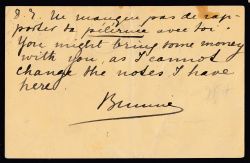 Ne manque pas de rap-
porter ta pélerine avec toi.
You might bring some money
with you, as I cannot
change the notes I have
here.